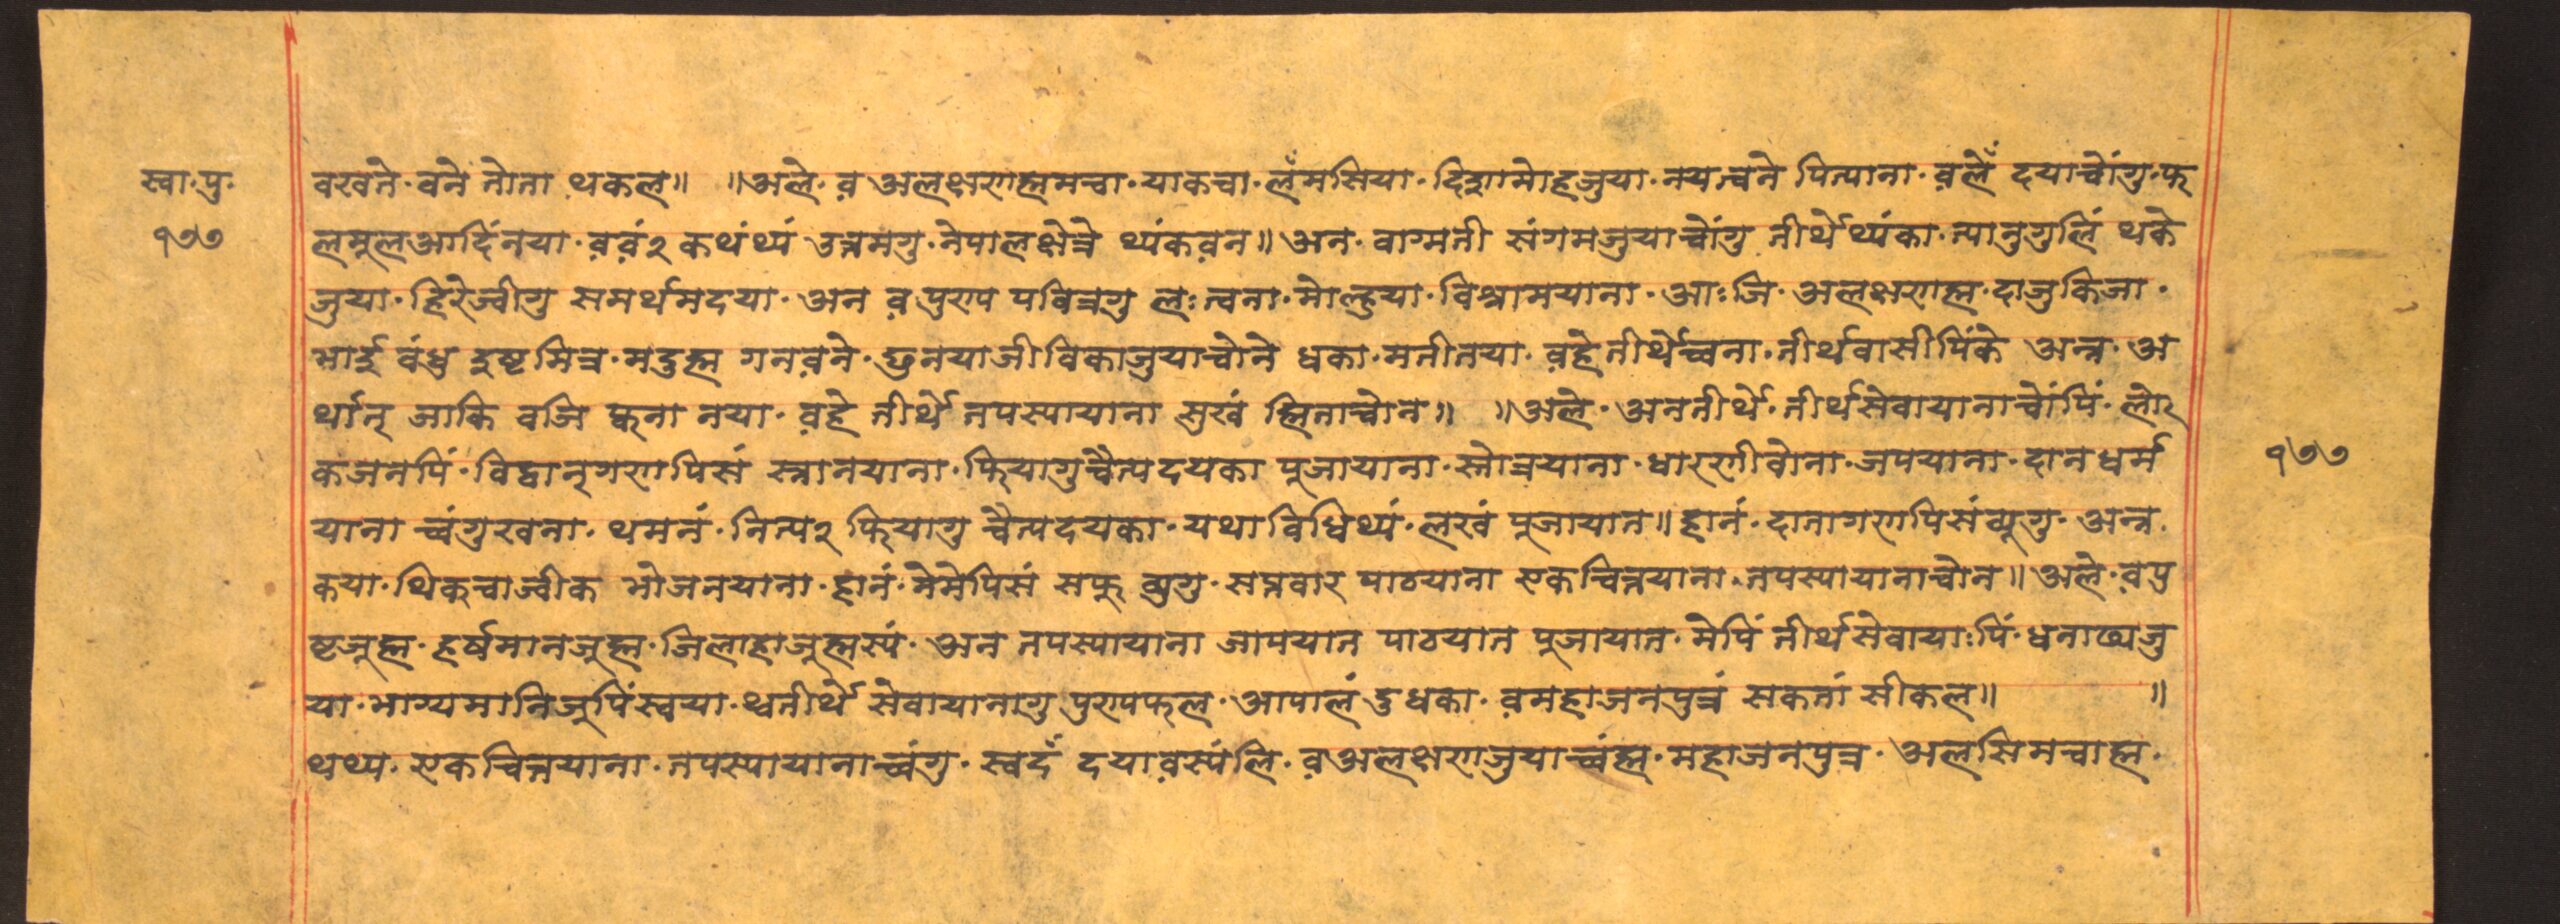 स्वा·पु·
१७७
वखने·वने तोता थकल॥ ॥अले·व़ अलक्षणह्ममचा·याकचा·लँमसिया·दिशामोहजुया·नयत्वने पित्याना·व़लेँ दयाच्वोंगु·फ
लमूलआदिंनया·व़व़ं२ कथंथ्यं उत्तमगु·नेपालक्षेत्रे थ्यंकव़न॥अन·वाग्मती संगमजुयाच्वोंगु तीर्थेथ्यंका·त्यानुगुलिं थके
जुया·हिरेज्वीगु समर्थमदया·अन व़पुण्य पवित्रगु लःत्वना·मोल्हुया·विश्रामयाना·आःजि·अलक्षणह्म·दाजुकिजा·
भाई वंधु इष्टमित्र·मदुह्म गनव़ने·छुनयाजीविकाजुयाच्वोने धका·मतीतया·व़हेतीर्थेच्वना·तीर्थवासीपिंके अन्न·अ
र्थात् जाकि वजि फ्वना नया·व़हे तीर्थे तपस्यायाना सुखं ह्मिताच्वोन॥ ॥अले·अनतीर्थे·तीर्थसेवायानाच्वोंपिं·लो
कजनपिं·विद्वान्‌गणपिसं स्नानयाना·फियागुचैत्यदयका पूजायाना·स्तोत्रयाना·धारणीवोना·जपयाना·दानधर्म
याना च्वंगुखना·थमनं·नित्य२ फियागु चैत्यदयका·यथाविधिथ्यं·लखं पूजायात॥हानं·दातागणपिसंव्यूगु·अन्न·
कया·थिकुचाज्वीक भोजनयाना·हानं·मेमेपिसं सफू व्यूगु·सप्तवार पाठयाना एकचित्तयाना·तपस्यायानाच्वोन॥अले·व़पु
ष्टजूह्म·हर्षमानजूह्म·जिलाहाजूह्मस्यं·अन तपस्यायाना जापयात पाठयात पूजायात·मेपिं तीर्थसेवायाःपिं·धनाढ्यजु
या·भाग्यमानिजूपिंस्वया·थ्वतीर्थे सेवायानागु पुण्यफल·आपालं दुधका·व़महाजनपुत्रं सकतां सीकल॥ ॥
थथ्य·एकचित्तयाना·तपस्यायानाच्वंगु·स्वदँ दयाव़स्यंलि·व़अलक्षणजुयाच्वंह्म·महाजनपुत्र·अलसिमचाह्म·
१७७